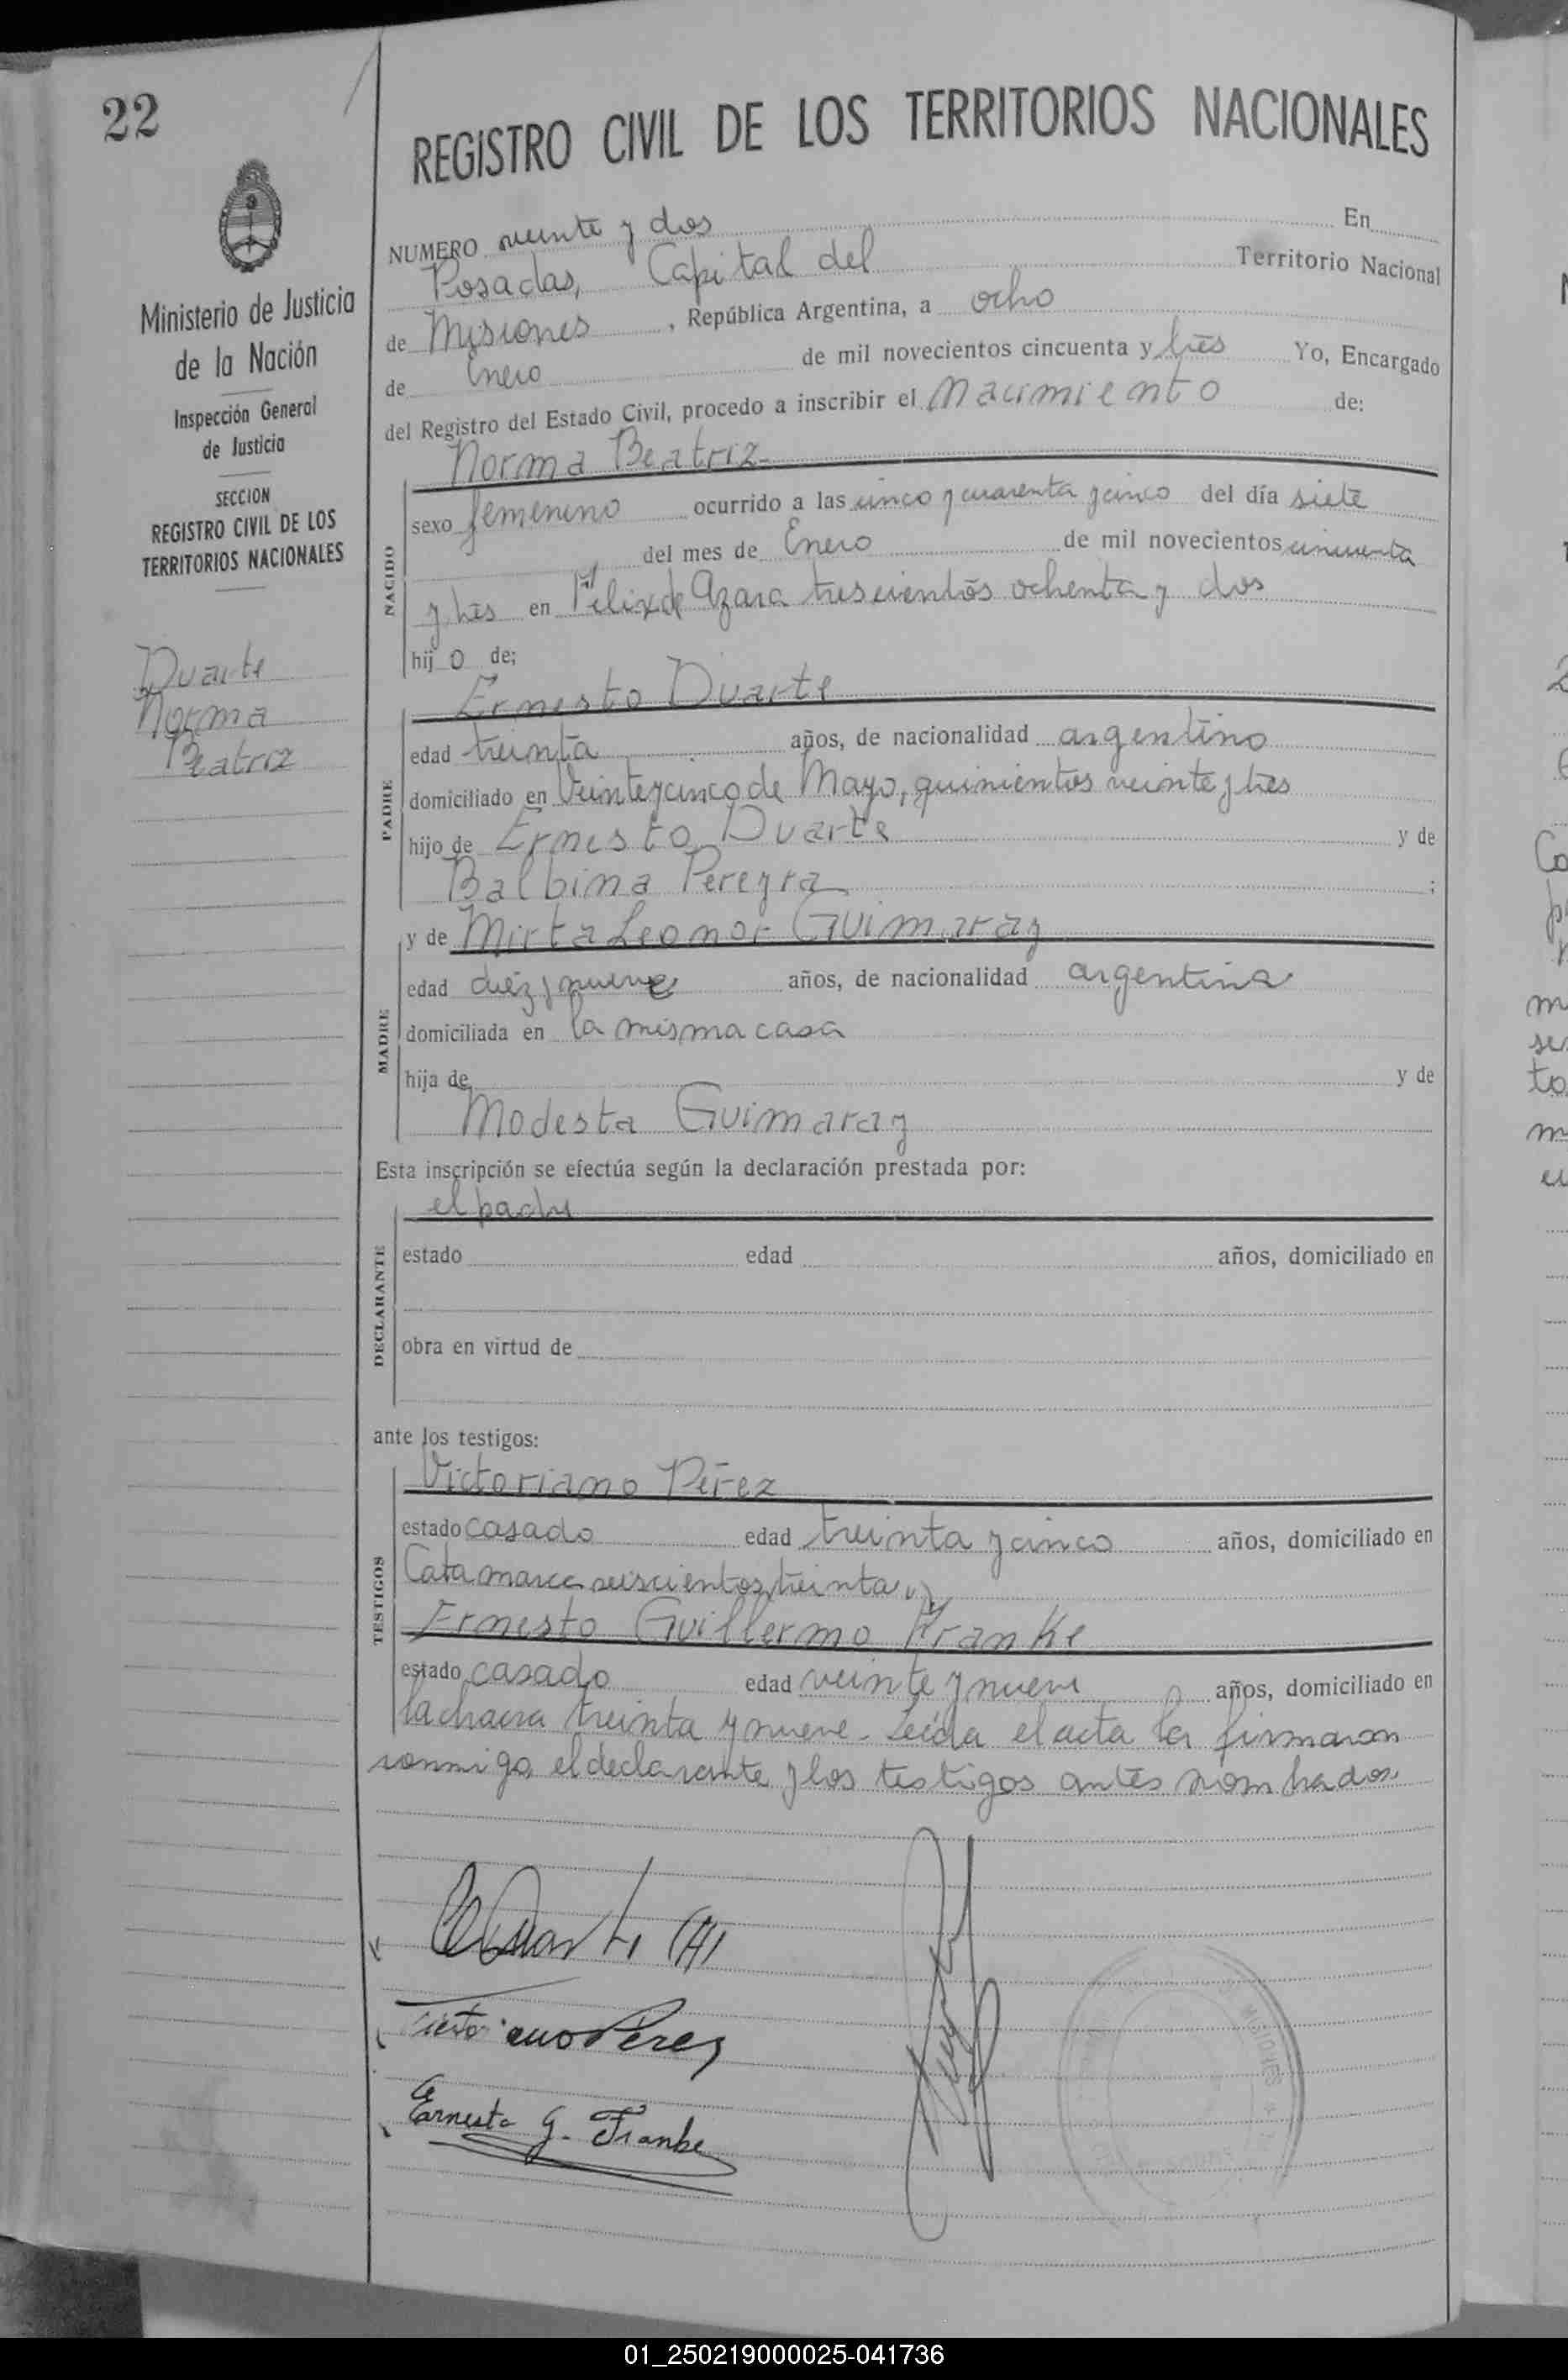 22
REGISTRO CIVIL DE LOS TERRITORIOS NACIONALES
Ministerio de Justicia
de la Nación
Inspección General
de Justicia
SECCION
REGISTRO CIVIL DE LOS
TERRITORIOS NACIONALES
Duarte
Norma
Beatriz
NUMERO veinte y dos En
Posadas, Capital del Territorio Nacional
de Misiones, República Argentina, a ocho
de Enero de mil novecientos cincuenta y tres Yo, Encargado
del Registro del Estado Civil, procedo a inscribir el Nacimiento de:
NACIDO
Norma Beatriz
sexo femenino ocurrido a las cinco y cuarenta y cinco del día siete
del mes de Enero de mil novecientos cincuenta
y tres en Félix de Azara trescientos ochenta y dos
hij o de;
PADRE
Ernesto Duarte
edad treinta años, de nacionalidad argentino
domiciliado en Veinte y cinco de Mayo, quinientos veinte y tres
hijo de Ernesto Duarte y de
Balbina Pereyra ;
MADRE
y de Mirta Leonor Guimaray
edad diez y nueve años, de nacionalidad argentina
domiciliada en la misma casa
hija de y de
Modesta Guimaray
Esta inscripción se efectúa según la declaración prestada por:
DECLARANTE
el padre
estado edad años, domiciliado en
obra en virtud de
ante los testigos:
TESTIGOS
Victoriano Pérez
estado casado edad treinta y cinco años, domiciliado en
Catamarca seiscientos treinta y
Ernesto Guillermo Franke
estado casado edad veinte y nueve años, domiciliado en
la chacra treinta y nueve - Leída el acta la firmaron
conmigo, el declarante y los testigos antes nombrados
EDuarte (H)
Victoriano Perez
Ernesto G. Franke
MISIONES
01_250219000025-041736